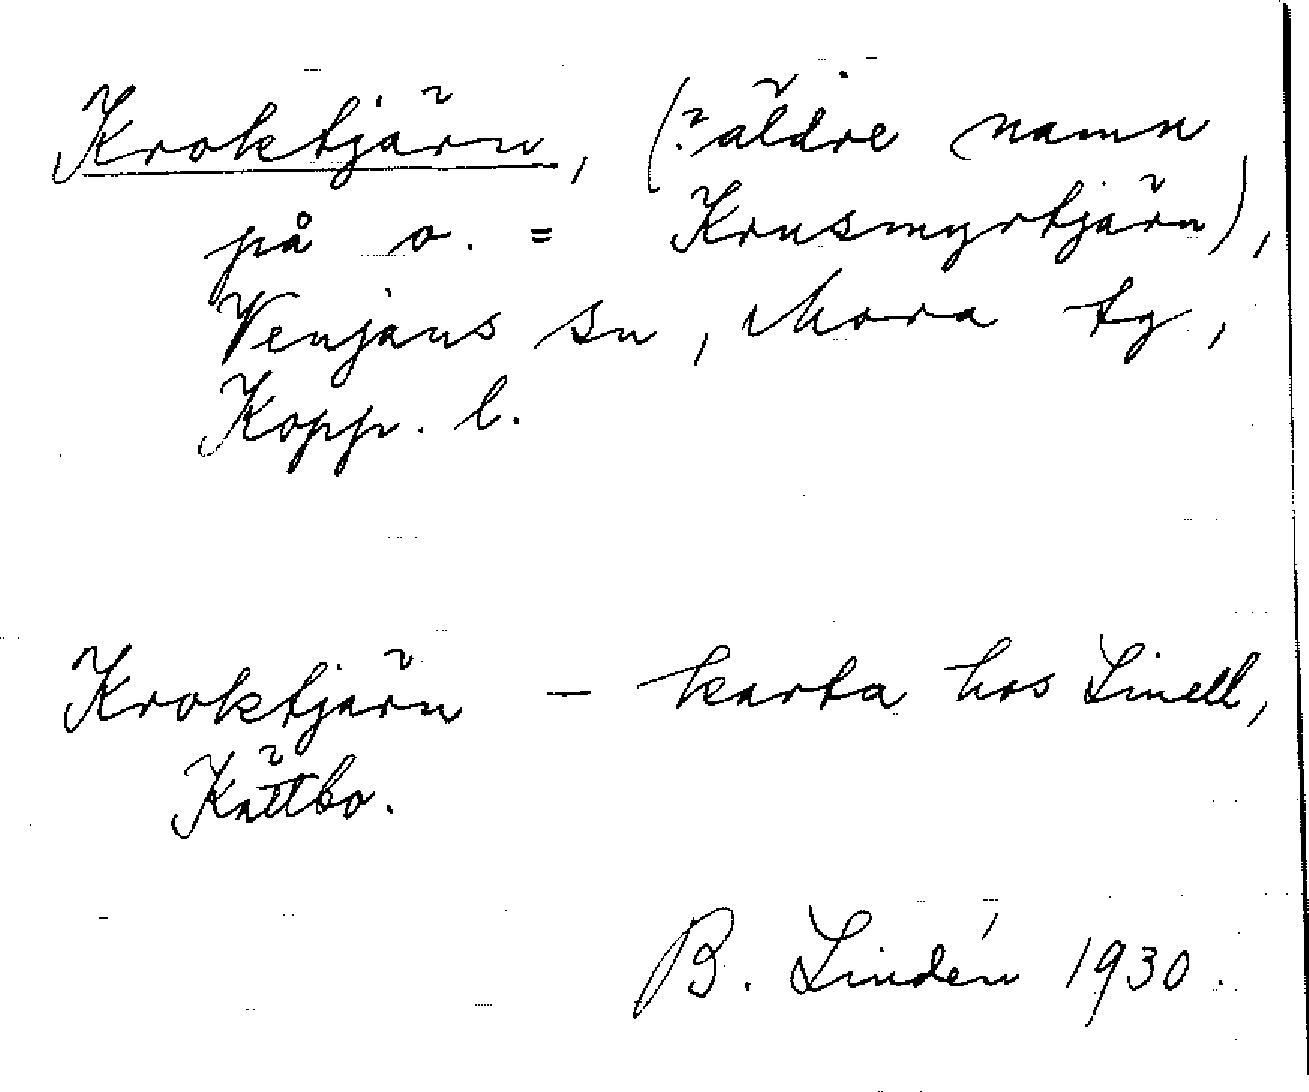 Kroktjärn, (? äldre namn
på o. = Krusmyrtjärn),
Venjans sn, Mora tg,
Kopp. l.
Kroktjärn — karta hos Linell,
Kättbo.
B. Lindén 1930.